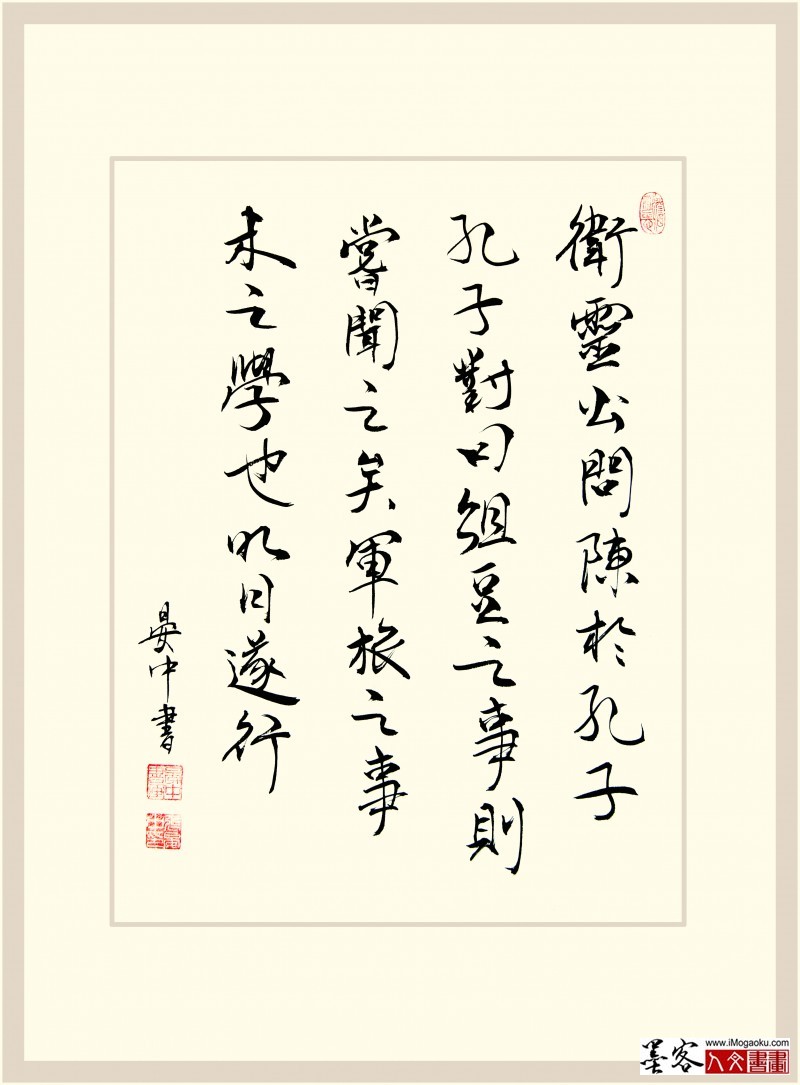 衛靈公問陳於孔子
孔子對曰俎豆之事則
嘗聞之矣軍旅之事
未之學也明日遂行
晏中書
墨客
www.iMogaoku.com
人文書畫